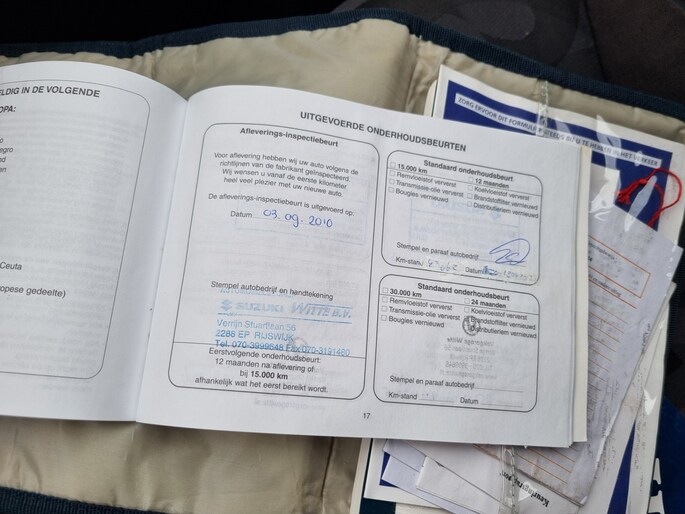 ELDIG IN DE VOLGENDE
OPA:
Ceuta
opese gedeelte)
UITGEVOERDE ONDERHOUDSBEURTEN
Afleverings-inspectiebeurt
Voor aflevering hebben wij uw auto volgens de
richtlijnen van de fabrikant geïnspecteerd.
Wij wensen u vanaf de eerste kilometer
heel veel plezier met uw nieuwe auto.
De afleverings-inspectiebeurt is uitgevoerd op:
Datum 03.09.2010
Stempel autobedrijf en handtekening
SUZUKI WITTE B.V.
Verrijn Stuartlaan 56
2288 EP RIJSWIJK
Tel. 070-3999848 Fax 070-3191480
Eerstvolgende onderhoudsbeurt:
12 maanden na aflevering of
bij 15.000 km
afhankelijk wat het eerst bereikt wordt.
Standaard onderhoudsbeurt
15.000 km
12 maanden
Remvloeistof ververst
Koelvloeistof ververst
Transmissie-olie ververst
Brandstoffilter vernieuwd
Bougies vernieuwd
Distributieriem vernieuwd
Stempel en paraaf autobedrijf
Km-stand
Datum
Standaard onderhoudsbeurt
30.000 km
24 maanden
Remvloeistof ververst
Koelvloeistof ververst
Transmissie-olie ververst
Brandstoffilter vernieuwd
Bougies vernieuwd
Distributieriem vernieuwd
Stempel en paraaf autobedrijf
Km-stand
Datum
17
ZORG ERVOOR DIT FORMULIER
IN HET VERKEER